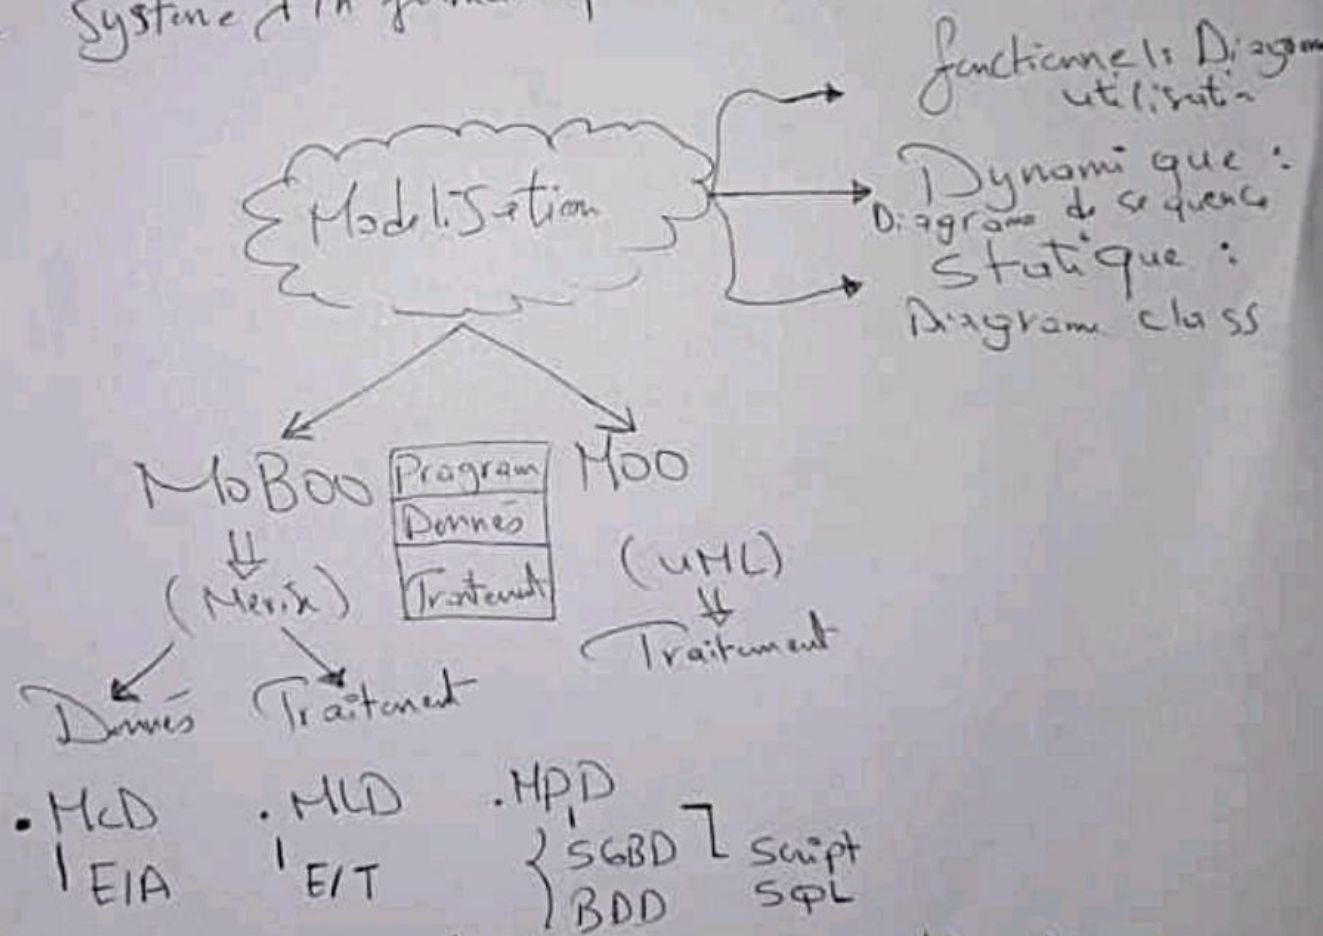 Système d'in
fonctionnel: Diagram
utilisatin
Modelisation
Dynamique :
Diagrame de sequence
Statique :
Diagrame class
MoBoo
Program
Donnés
Traitemut
Moo
(Meris)
(UML)
Traitement
Donnés
Traitement
. McD
. MLD
. MPD
E/A
E/T
SGBD
BDD
Script
SQL